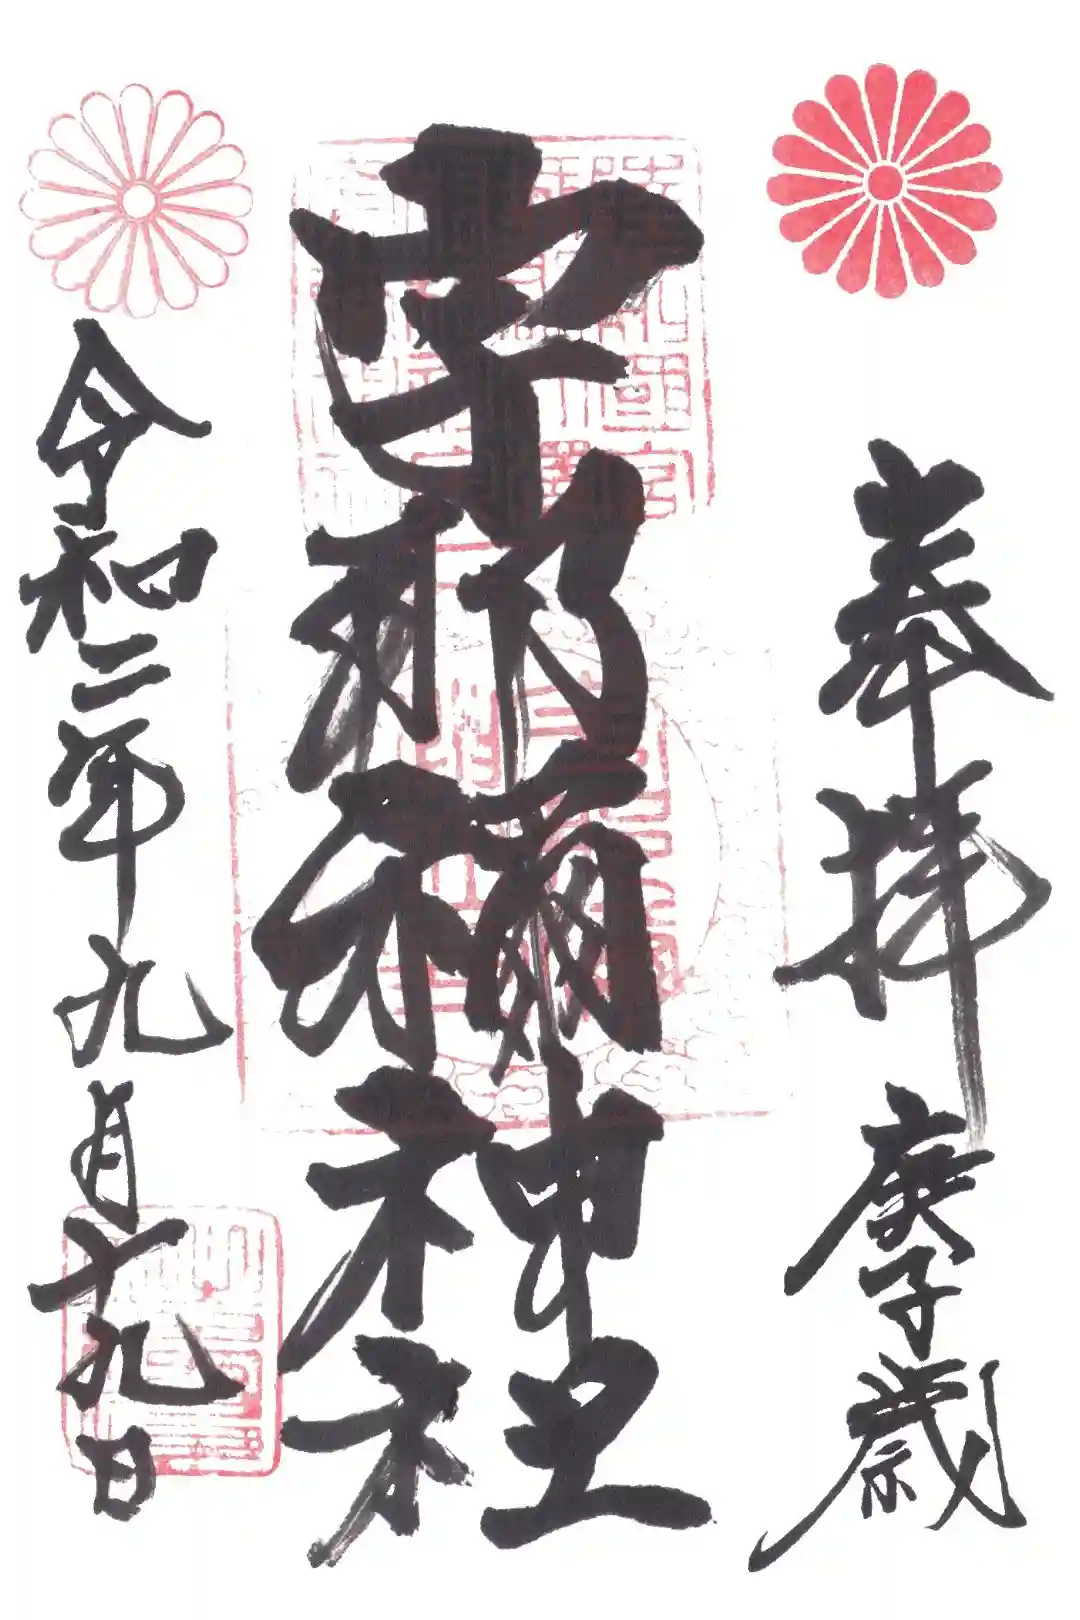 奉拝　庚子歳
宇那禰神社
令和二年九月十九日